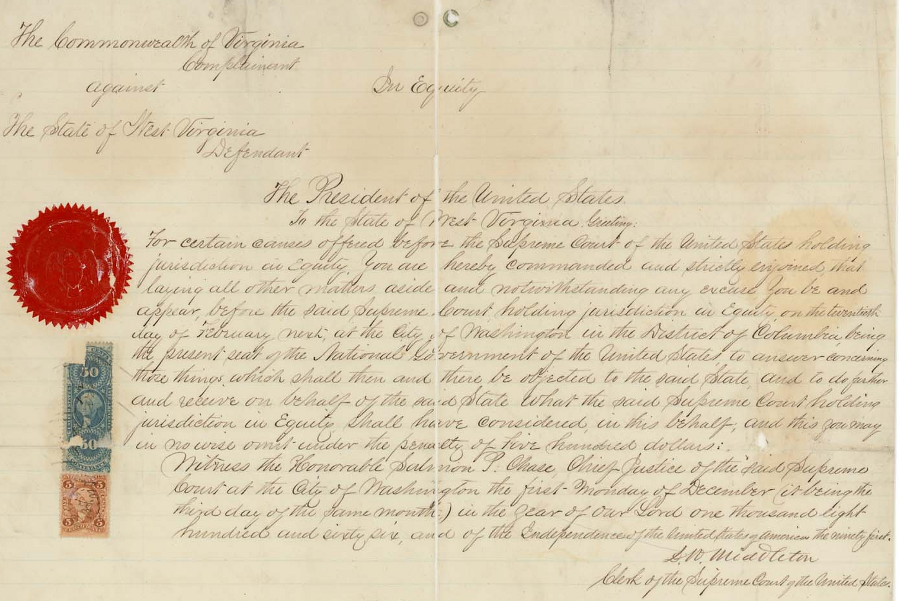 The Commonwealth of Virginia
Complainent
against
In Equity
The State of West Virginia
Defendant
The President of the United States
To the State of West Virginia Greeting:
For certain causes offered before the Supreme Court of the United States holding
jurisdiction in Equity, You are hereby commanded and strictly enjoined, that
laying all other matters aside and notwithstanding any excuse You be and
appear, before the said Supreme Court holding jurisdiction in Equity, on the twentieth
day of February next, at the City of Washington in the District of Columbia, being
the present seat of the National Government of the United States, to answer concerning
those things, which shall then and there be objected to the said State, and to do further
and receive on behalf of the said State what the said Supreme Court holding
jurisdiction in Equity shall have considered, in this behalf, and this you may
in no wise omit under the penalty of five hundred dollars:
Witness the Honorable Salmon P. Chase, Chief Justice of the said Supreme
Court at the City of Washington the first Monday of December (it being the
third day of the same month) in the Year of our Lord one thousand eight
hundred and sixty six, and of the Independence of the United States of America the ninety first.
D. W. Middleton
Clerk of the Supreme Court of the United States.
50
50
5 5